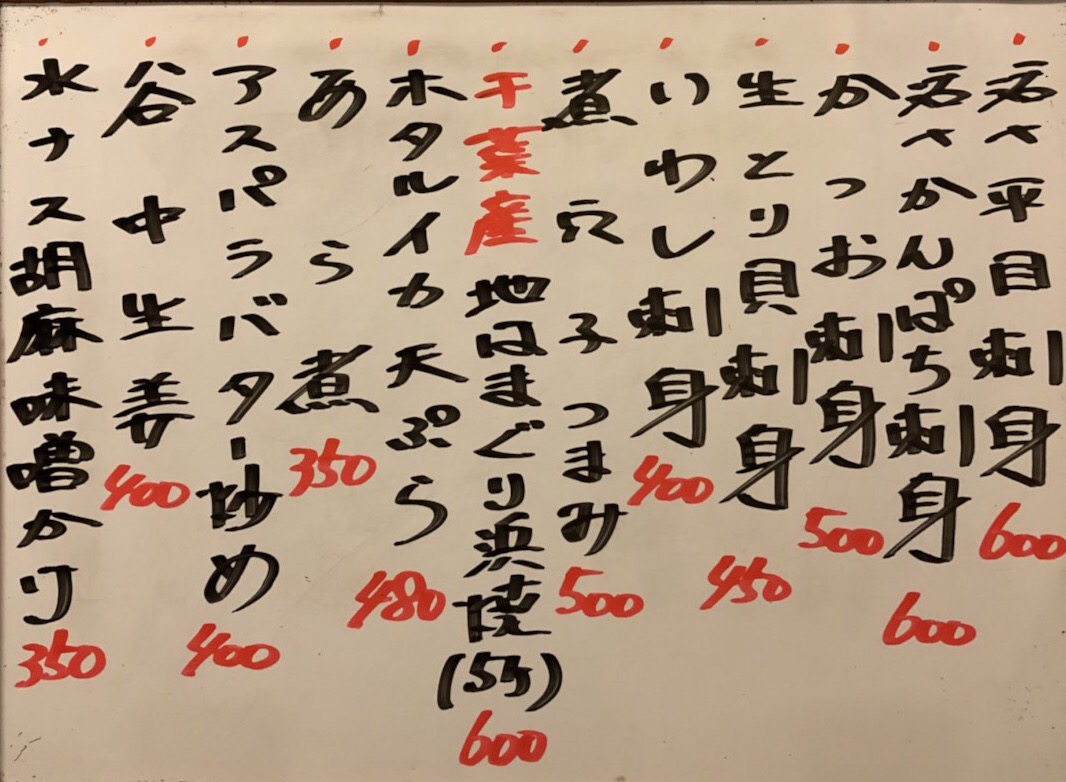 平目刺身 600
かんぱち刺身 600
かつお刺身 500
生とり貝刺身 450
いわし刺身 400
煮穴子つまみ 500
千葉産地はまぐり浜焼(5ケ) 600
ホタルイカ天ぷら 480
あら煮 350
アスパラバター炒め 400
谷中生姜 400
水ナス胡麻味噌かけ 350